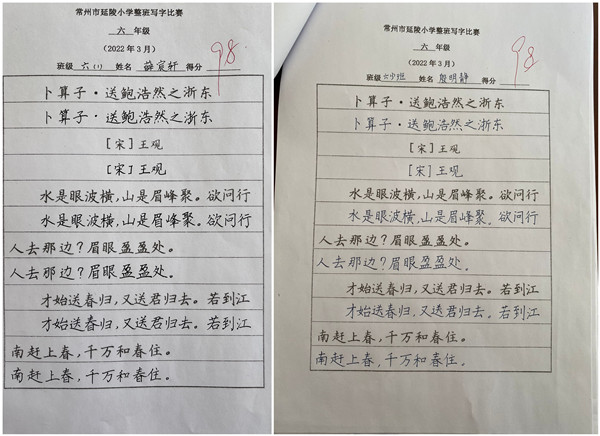 常州市延陵小学整班写字比赛
六 年级
（2022年3月）
班级 六(1) 姓名 薛宸轩 得分 98
卜算子·送鲍浩然之浙东
卜算子·送鲍浩然之浙东
［宋］王观
［宋］王观
水是眼波横，山是眉峰聚。欲问行
水是眼波横，山是眉峰聚。欲问行
人去那边？眉眼盈盈处。
人去那边？眉眼盈盈处。
才始送春归，又送君归去。若到江
才始送春归，又送君归去。若到江
南赶上春，千万和春住。
南赶上春，千万和春住。
常州市延陵小学整班写字比赛
六 年级
（2022年3月）
班级 姓名 殷明静 得分 98
卜算子·送鲍浩然之浙东
卜算子·送鲍浩然之浙东
［宋］王观
［宋］王观
水是眼波横，山是眉峰聚。欲问行
水是眼波横，山是眉峰聚。欲问行
人去那边？眉眼盈盈处。
人去那边？眉眼盈盈处。
才始送春归，又送君归去。若到江
才始送春归，又送君归去。若到江
南赶上春，千万和春住。
南赶上春，千万和春住。